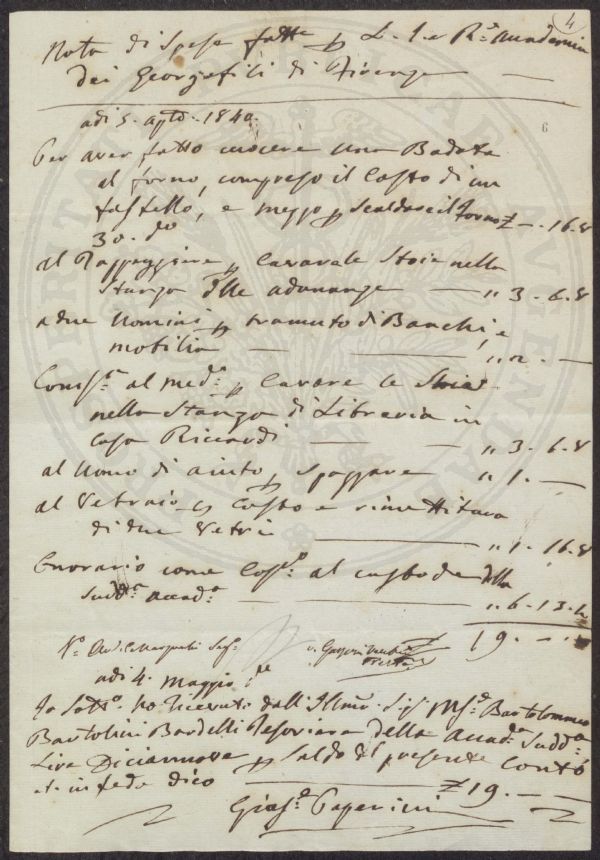 4
Nota di Spese fatte p L. I. e R. Accademia
dei Georgofili di Firenze
6
adi 5. Agto. 1840.
Per aver fatto cuocere una Badata
al forno, compreso il Costo di un
fastello, e mezzo p Scaldare il forno £ —. 16. 8
30. do
al p Cavare le Stoie nella
Stanza delle adunanze — „ 3 - 6. 8
a due Uomini p tramuto di Banchi, e
mobilia — „ 2. —
al med.o p Cavare le Stoie
nella Stanza di Libreria in
Casa Riccardi — „ 3 - 6. 8
al Uomo di aiuto p Spazzare „ 1. —
al Vetraio p Costo e rimettitura
di due Vetri — „ 1 - 16. 8
Onorario come al custode della
Sudd.a Accad.a — „ 6 - 13. 4
19. — . —
adi 4. Maggio
Io Sotto. ho ricevuto dall' Illmo. Sig. Bartolommeo
Bartolini Bardelli Tesoriere della Accad.a Sudd.a
Lire Diciannove p Saldo del presente Conto
e in fede dico — £ 19. — . —